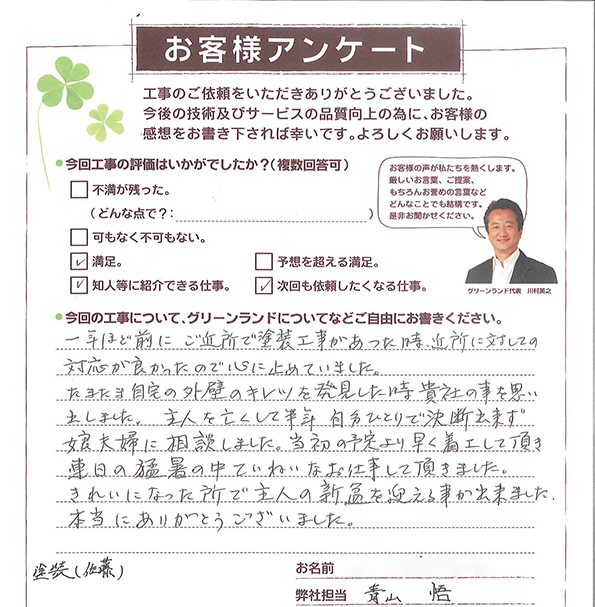 お客様アンケート
工事のご依頼をいただきありがとうございました。
今後の技術及びサービスの品質向上の為に、お客様の
感想をお書き下されば幸いです。よろしくお願いします。
●今回工事の評価はいかがでしたか？（複数回答可）
不満が残った。
（どんな点で？：　　　　　　　　　　）
可もなく不可もない。
満足。　予想を超える満足。
知人等に紹介できる仕事。　次回も依頼したくなる仕事。
お客様の声が私たちを熱くします。
厳しいお言葉、ご提案、
もちろんお誉めの言葉など
どんなことでも結構です。
是非お聞かせください。
グリーンランド代表　川村英之
●今回の工事について、グリーンランドについてなどご自由にお書きください。
一年ほど前に ご近所で塗装工事があった時、近所に対しての
対応が良かったので心に止めていました。
たまたま自宅の外壁のキレツを発見した時 貴社の事を思い
出しました。 主人を亡くして半年 自分ひとりで決断出来ず
娘夫婦に相談しました。当初の予定より早く着工して頂き
連日の猛暑の中ていねいなお仕事して頂きました。
きれいになった所で主人の新盆を迎える事が出来ました、
本当にありがとうございました。
塗装（佐藤）
お名前
弊社担当　青山　悟